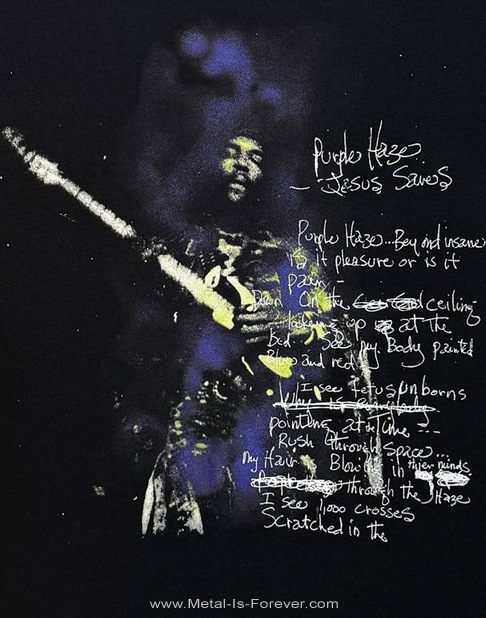 Purple Haze
— Jesus Saves
Purple Haze... Beyond insane
is it pleasure or is it
pain —
Down On the ceiling
looking up at the
Bed. See my Body painted
Blue and red
I see fetus unborns
Why is everybody
pointing at Time ...
Rush through space...
my Hair Blowing in their minds
through the Haze
I see 1,000 crosses
Scratched in the
www.Metal-Is-Forever.com